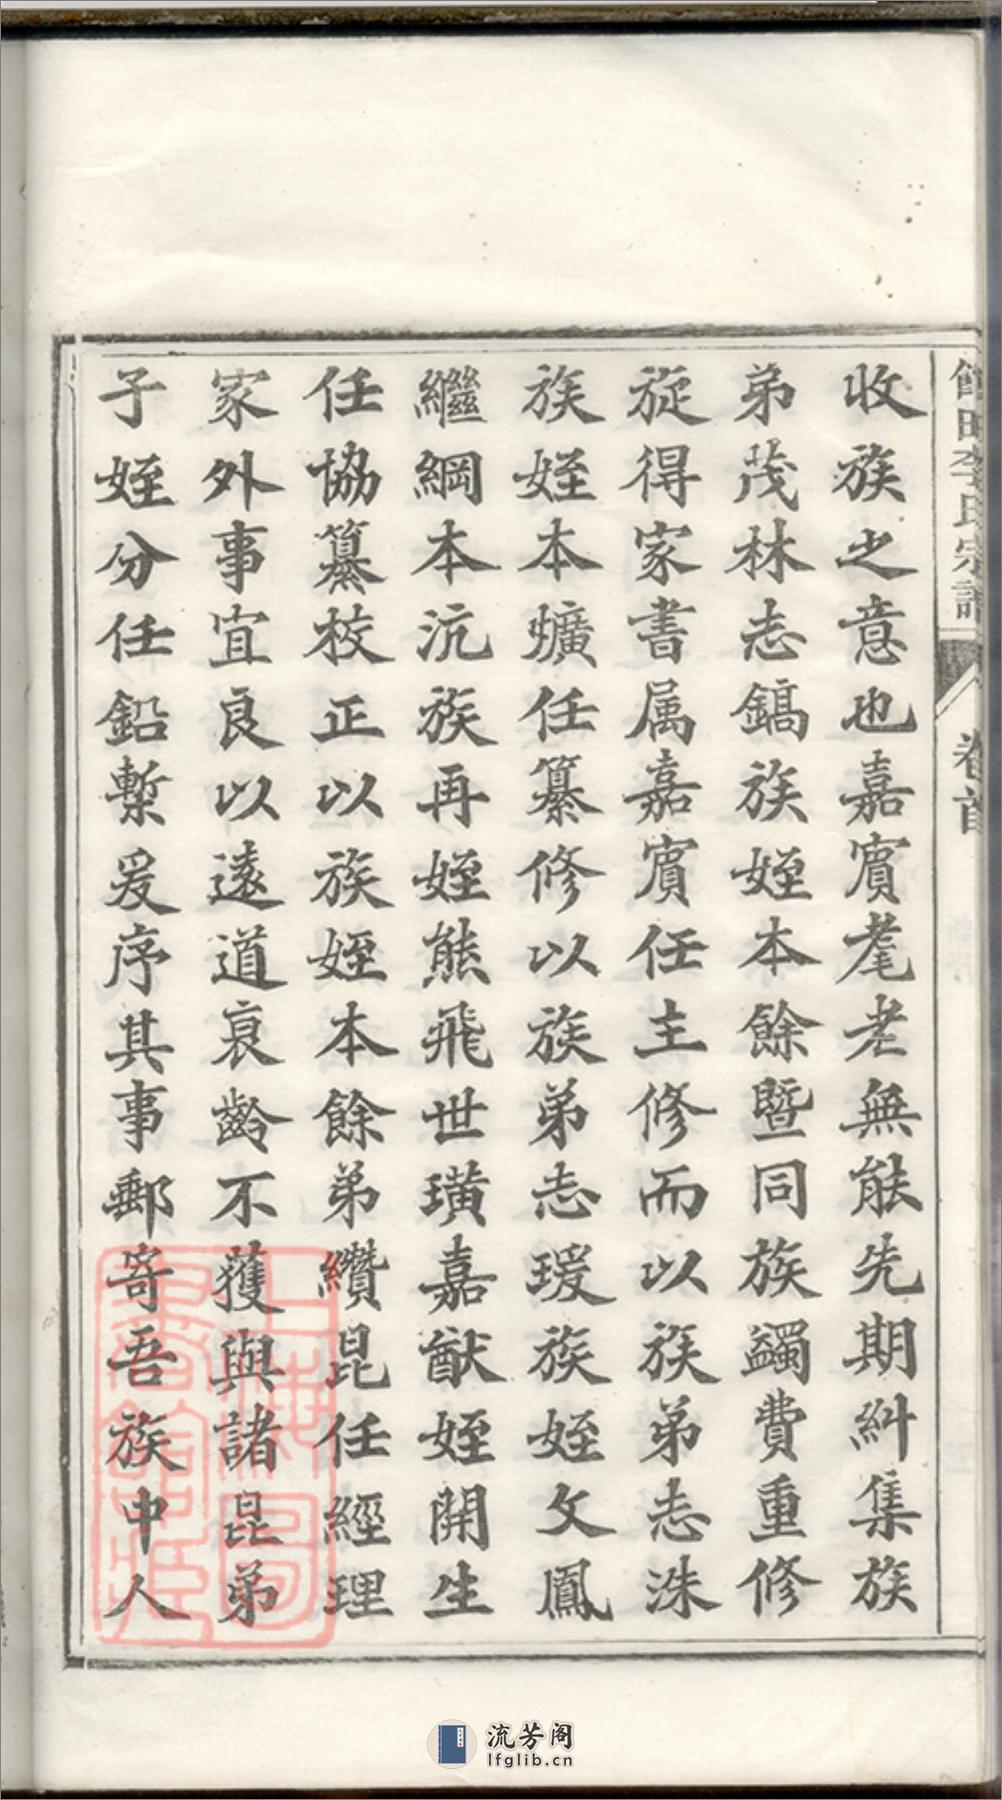 李氏宗譜
卷首
收族之意也嘉賓耄老無能先期糾集族
弟茂林志鎬族姪本餘暨同族蠲費重修
旋得家書属嘉賓任主修而以族弟志洙
族姪本爌任纂修以族弟志瑗族姪文鳳
繼綱本沆族再姪熊飛世璜嘉猷姪開生
任協纂校正以族姪本餘弟纘昆任經理
家外事宜良以遠道衰齡不獲與諸昆弟
子姪分任鉛槧爰序其事郵寄吾族中人
流芳阁
lfglib.cn